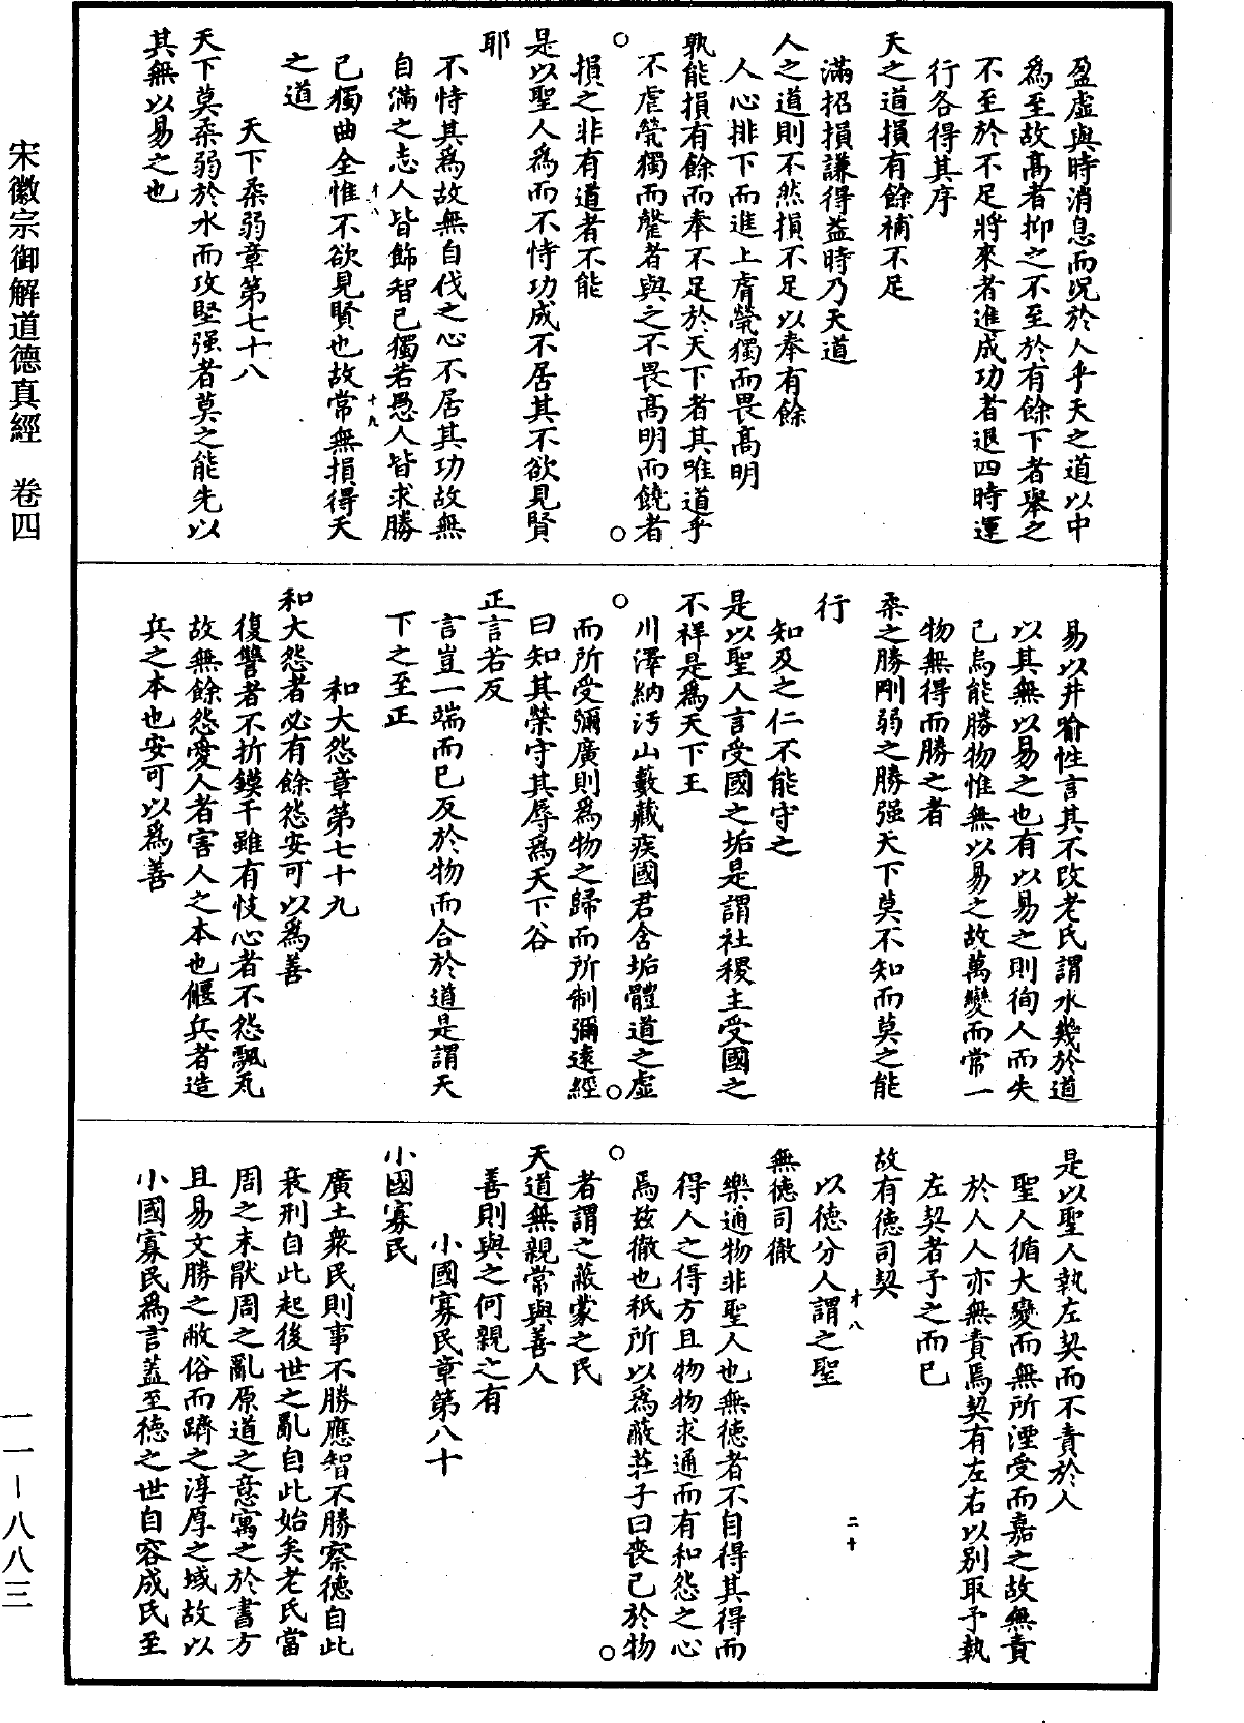 盈虛與時消息而況於人乎天之道以中
爲至故髙者抑之不至於有餘下者舉之
不至於不足將來者進成功者退四時運
行各得其序
天之道損有餘補不足
滿招損謙得益時乃天道
人之道則不然損不足以奉有餘
人心排下而進上虐煢獨而畏髙明
孰能損有餘而奉不足於天下者其唯道乎
不虐煢獨而罄者與之不畏髙明而饒者
損之非有道者不能
是以聖人爲而不恃功成不居其不欲見賢
耶
不恃其爲故無自伐之心不居其功故無
自滿之志人皆飾智已獨若愚人皆求勝
已獨曲全惟不欲見賢也故常無損得天
之道
十八
十九
天下柔弱章第七十八
天下莫柔弱於水而攻堅强者莫之能先以
其無以易之也
易以井喻性言其不改老氏謂水幾於道
以其無以易之也有以易之則徇人而失
己烏能勝物惟無以易之故萬變而常一
物無得而勝之者
柔之勝剛弱之勝强天下莫不知而莫之能
行
知及之仁不能守之
是以聖人言受國之垢是謂社稷主受國之
不祥是爲天下王
川澤納汚山藪藏疾國君含垢體道之虛
而所受彌廣則爲物之歸而所制彌遠經
曰知其榮守其辱爲天下谷
正言若反
言豈一端而已反於物而合於道是謂天
下之至正
和大怨章第七十九
和大怨者必有餘怨安可以爲善
復讐者不折鏌干雖有忮心者不怨飄瓦
故無餘怨愛人者害人之本也偃兵者造
兵之本也安可以爲善
是以聖人執左契而不責於人
聖人循大變而無所湮受而嘉之故無責
於人人亦無責焉契有左右以别取予執
左契者予之而已
故有德司契
以德分人謂之聖
十八
二十
無德司徹
樂通物非聖人也無德者不自得其得而
得人之得方且物物求通而有和怨之心
焉兹徹也秖所以爲蔽莊子曰喪己於物
者謂之蔽蒙之民
天道無親常與善人
善則與之何親之有
小國寡民章第八十
小國寡民
廣土衆民則事不勝應智不勝察德自此
衰刑自此起後世之亂自此始矣老氏當
周之末猒周之亂原道之意寓之於書方
且易文勝之敝俗而躋之淳厚之域故以
小國寡民爲言蓋至德之世自容成氏至
宋徽宗御解道德真經　卷四
一一—八八三